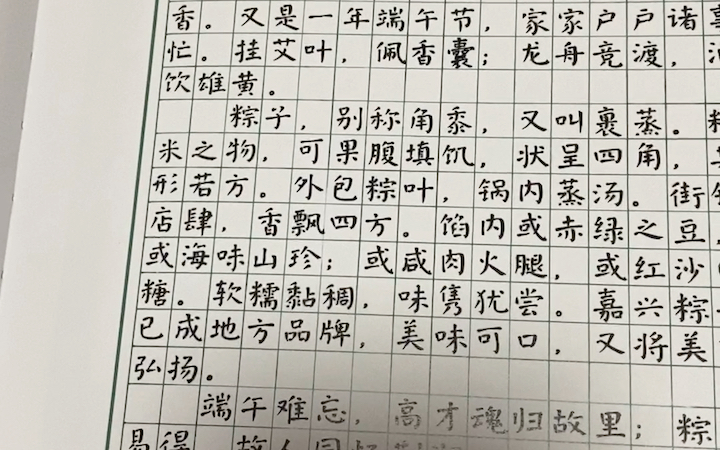 香。又是一年端午节，家家户户诸事
忙。挂艾叶，佩香囊；龙舟竞渡，
饮雄黄。
粽子，别称角黍，又叫裹蒸。
米之物，可果腹填饥，状呈四角，
形若方。外包粽叶，锅内蒸汤。街
店肆，香飘四方。馅内或赤绿之豆，
或海味山珍；或咸肉火腿，或红沙
糖。软糯黏稠，味隽犹尝。嘉兴粽
已成地方品牌，美味可口，又将美
弘扬。
端午难忘，高才魂归故里；粽
易得，故人